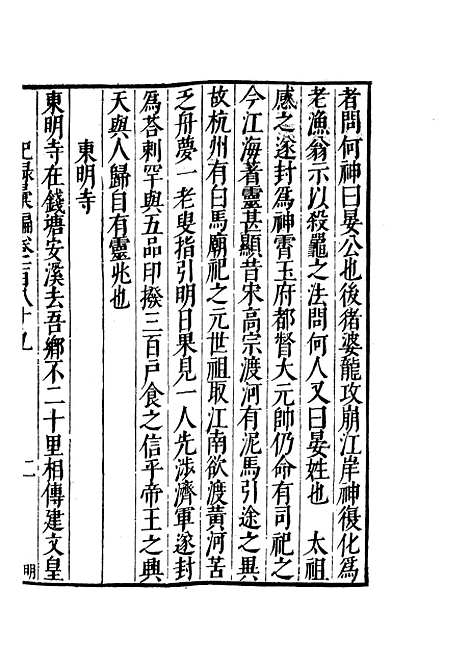 者問何神曰晏公也後豬婆龍攻崩江岸神復化爲
老漁翁示以殺鼉之法問何人又曰晏姓也　太祖
感之遂封爲神霄玉府都督大元帥仍命有司祀之
今江海著靈甚顯昔宋高宗渡河有泥馬引途之異
故杭州有白馬廟祀之元世祖取江南欲渡黃河苦
乏舟夢一老叟指引明日果見一人先涉濟軍遂封
爲荅剌罕與五品印撥三百戶食之信乎帝王之興
天與人歸自有靈兆也
東明寺
東明寺在錢塘安溪去吾鄉不二十里相傳建文皇
紀錄彙編卷一百八十九
二
明